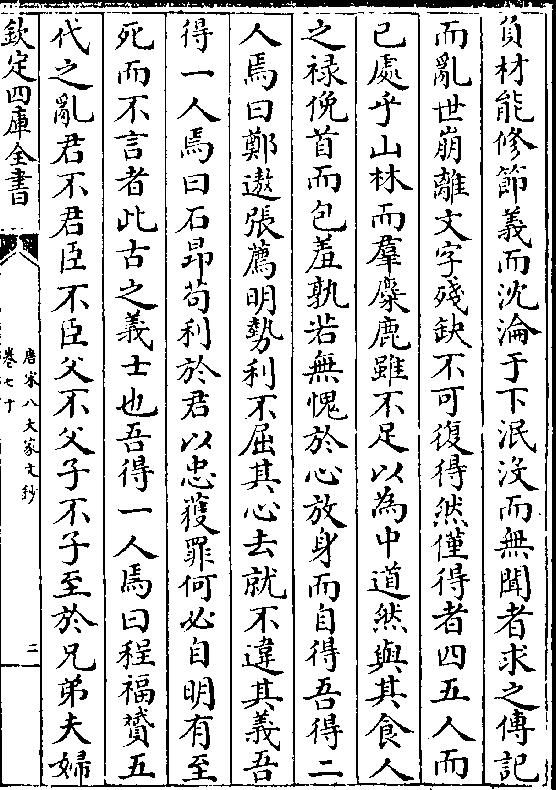 負材能修節義而沈淪于下泯沒而無聞者求之傳記
而亂世崩離文字殘缺不可復得然僅得者四五人而
已處乎山林而羣麋鹿雖不足以為中道然與其食人
之禄俛首而包羞孰若無愧於心放身而自得吾得二
人焉曰鄭遨張薦明勢利不屈其心去就不違其義吾
得一人焉曰石昂苟利於君以忠獲罪何必自明有至
死而不言者此古之義士也吾得一人焉曰程福贇五
代之亂君不君臣不臣父不父子不子至於兄弟夫婦
欽定四庫全書
唐宋八大家文鈔
卷七十
二